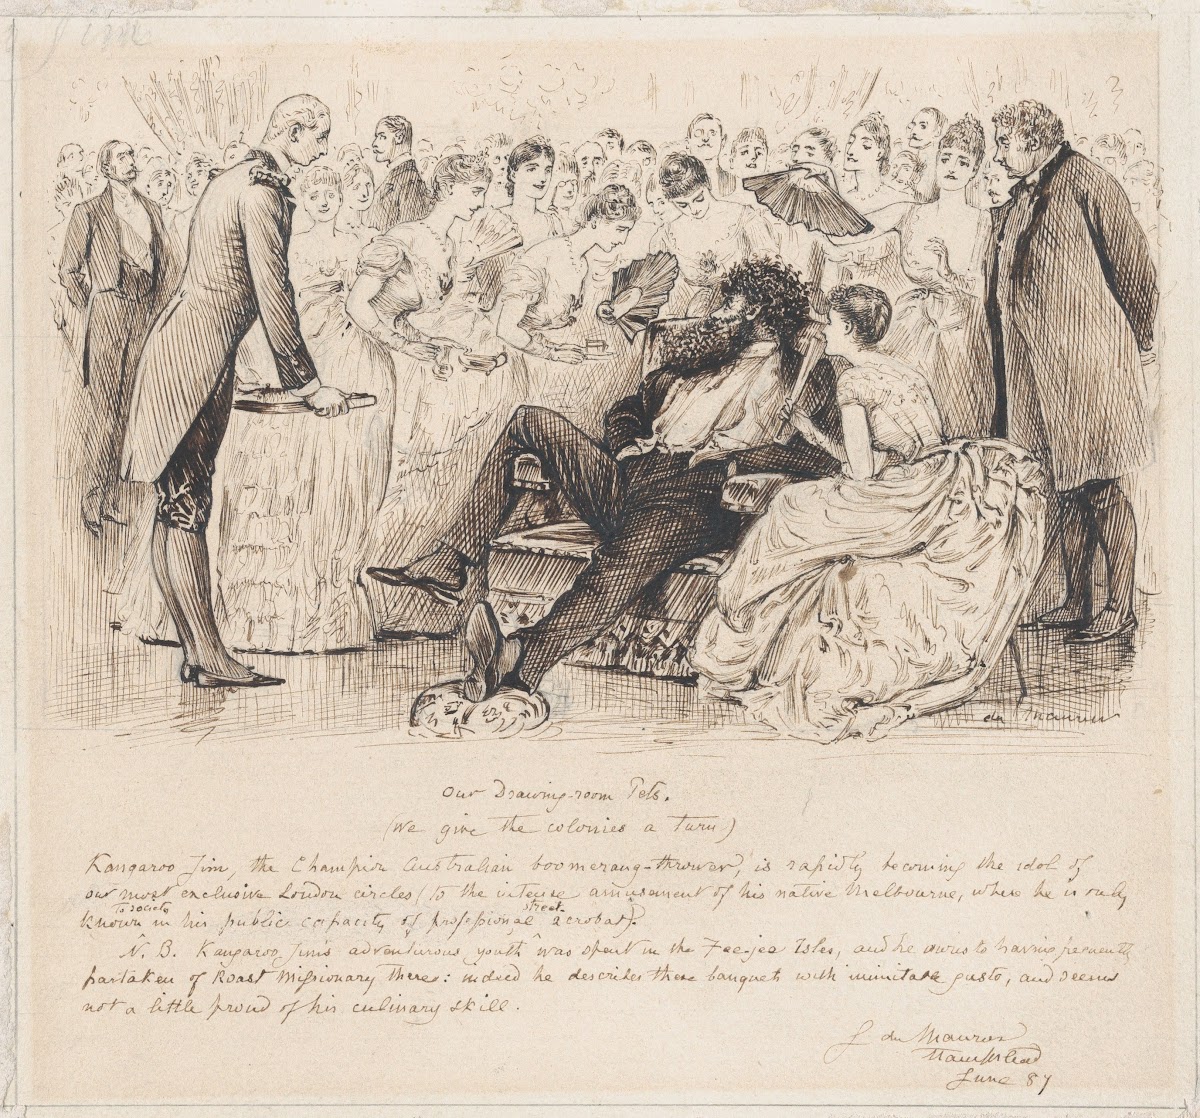 Jim
du Maurier
Our Drawing-room Pets.
(We give the colonies a turn)
Kangaroo Jim, the Champion Australian boomerang-thrower, is rapidly becoming the idol of
our most exclusive London circles (to the intense amusement of his native Melbourne, where he is only
known to society in his public capacity of professional street acrobat).
N.B. Kangaroo Jim's adventurous youth was spent in the Fee-jee Isles, and he owns to having frequently
partaken of Roast Missionary there: indeed he describes these banquets with inimitable gusto, and seems
not a little proud of his culinary skill.
G du Maurier
Hampstead
June 87